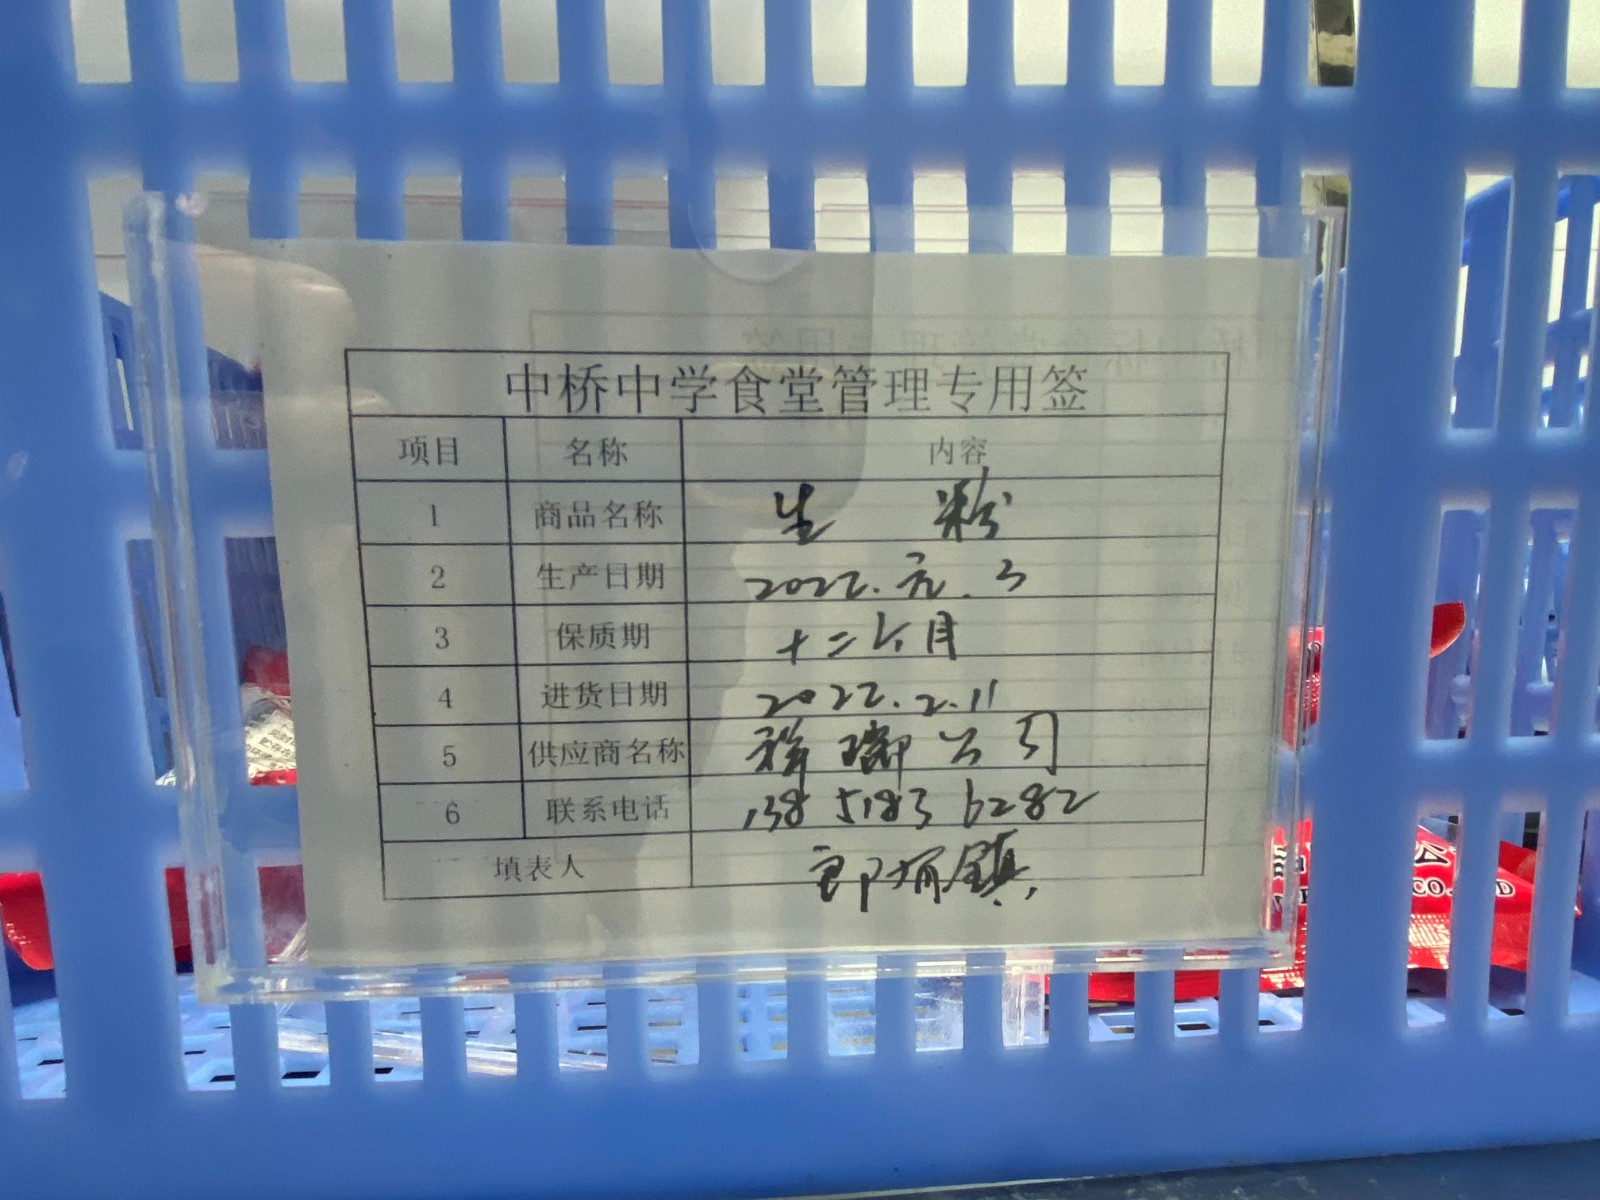 中桥中学食堂管理专用签
项目 名称 内容
1 商品名称 生粉
2 生产日期 2022.元.3
3 保质期 十二个月
4 进货日期 2022.2.11
5 供应商名称 公司
6 联系电话 138 5183 6282
填表人 郎 镇
CO.,LTD